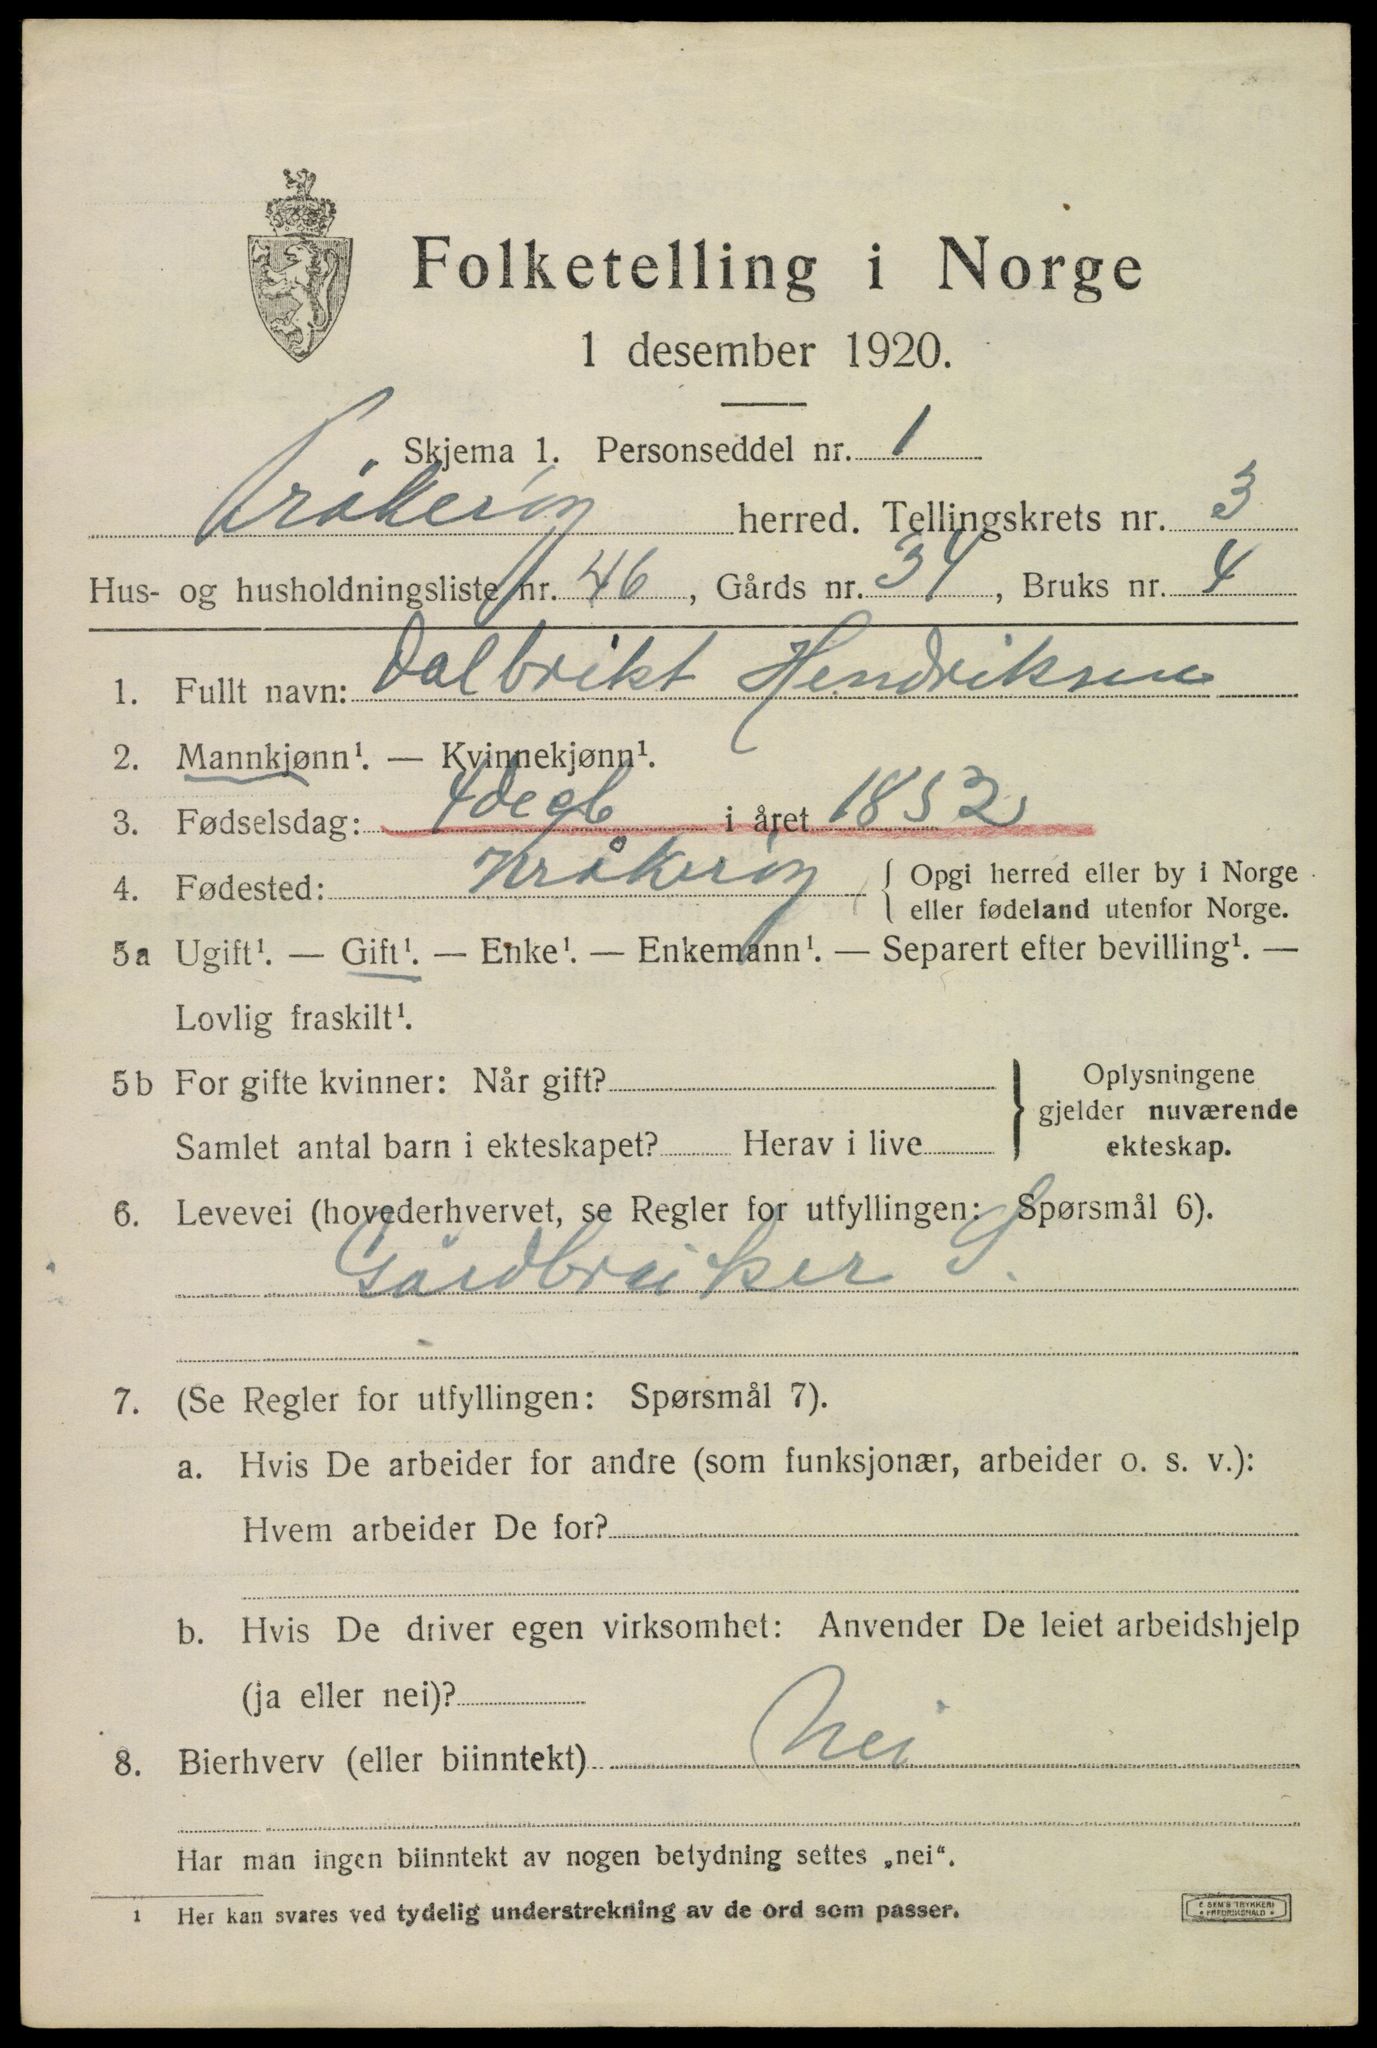 Folketelling i Norge
1 desember 1920.
Skjema 1. Personseddel nr. 1
Kråkerøy herred. Tellingskrets nr. 3
Hus- og husholdningsliste nr. 46, Gårds nr. 34, Bruks nr. 4
1. Fullt navn: Dalbrikt Hendriksen
2. Mannkjønn¹. — Kvinnekjønn¹.
3. Fødselsdag: 4 decb i året 1852
4. Fødested: Kråkerøy { Opgi herred eller by i Norge
eller fødeland utenfor Norge.
5a Ugift¹. — Gift¹. — Enke¹. — Enkemann¹. — Separert efter bevilling¹. —
Lovlig fraskilt¹.
5b For gifte kvinner: Når gift?
Samlet antal barn i ekteskapet? Herav i live
} Oplysningene
gjelder nuværende
ekteskap.
6. Levevei (hovederhvervet, se Regler for utfyllingen: Spørsmål 6).
Gårdbruker S.
7. (Se Regler for utfyllingen: Spørsmål 7).
a. Hvis De arbeider for andre (som funksjonær, arbeider o. s. v.):
Hvem arbeider De for?
b. Hvis De driver egen virksomhet: Anvender De leiet arbeidshjelp
(ja eller nei)?
8. Bierhverv (eller biinntekt) Nei
Har man ingen biinntekt av nogen betydning settes „nei“.
1 Her kan svares ved tydelig understrekning av de ord som passer.
E. SEM'S TRYKKERI
• FREDRIKSHALD •